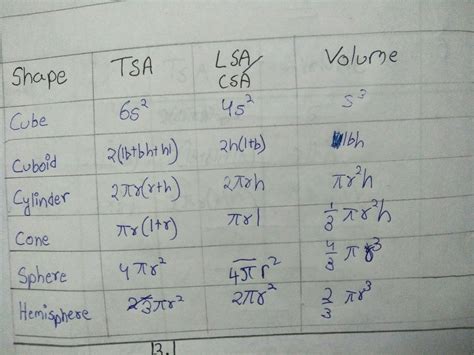 Shape TSA LSA/CSA Volume
Cube 6s² 4s² s³
Cuboid 2(lb+bh+hl) 2h(l+b) lbh
Cylinder 2πr(r+h) 2πrh πr²h
Cone πr(l+r) πrl 1/3 πr²h
Sphere 4πr² 4πr² 4/3 πr³
Hemisphere 3πr² 2πr² 2/3 πr³
13.1